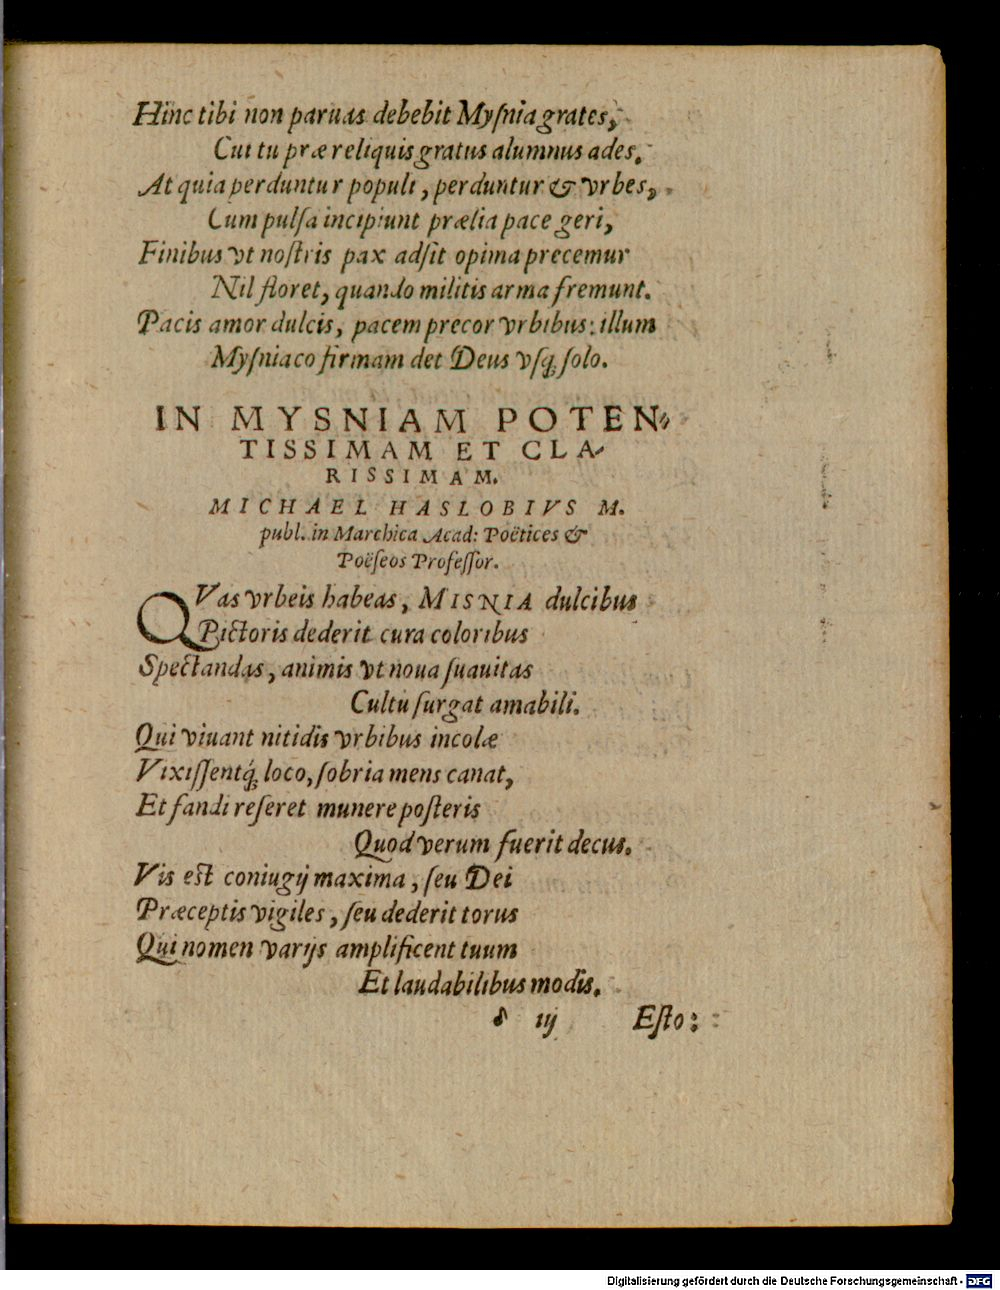 Hinc tibi non paruas debebit Myſnia grates,
Cui tu præ reliquis gratus alumnus ades.
At quia perduntur populi, perduntur & vrbes,
Cum pulſa incipiunt prælia pace geri,
Finibus vt noſtris pax adſit opima precemur
Nil floret, quando militis arma fremunt.
Pacis amor dulcis, pacem precor vrbibus: illum
Myſniaco firmam det Deus vſq; ſolo.
IN MYSNIAM POTEN-
TISSIMAM ET CLA-
RISSIMAM.
MICHAEL HASLOBIVS M.
publ. in Marchica Acad: Poëtices &
Poëſeos Profeſſor.
QVas vrbeis habeas, MISNIA dulcibus
Pictoris dederit cura coloribus
Spectandas, animis vt noua ſuauitas
Cultu ſurgat amabili.
Qui viuant nitidis vrbibus incolæ
Vixiſſentq́; loco, ſobria mens canat,
Et fandi reſeret munere poſteris
Quod verum fuerit decus.
Vis eſt coniugij maxima, ſeu Dei
Præceptis vigiles, ſeu dederit torus
Qui nomen varijs amplificent tuum
Et laudabilibus modis.
iij Eſto:
Digitalisierung gefördert durch die Deutsche Forschungsgemeinschaft - DFG